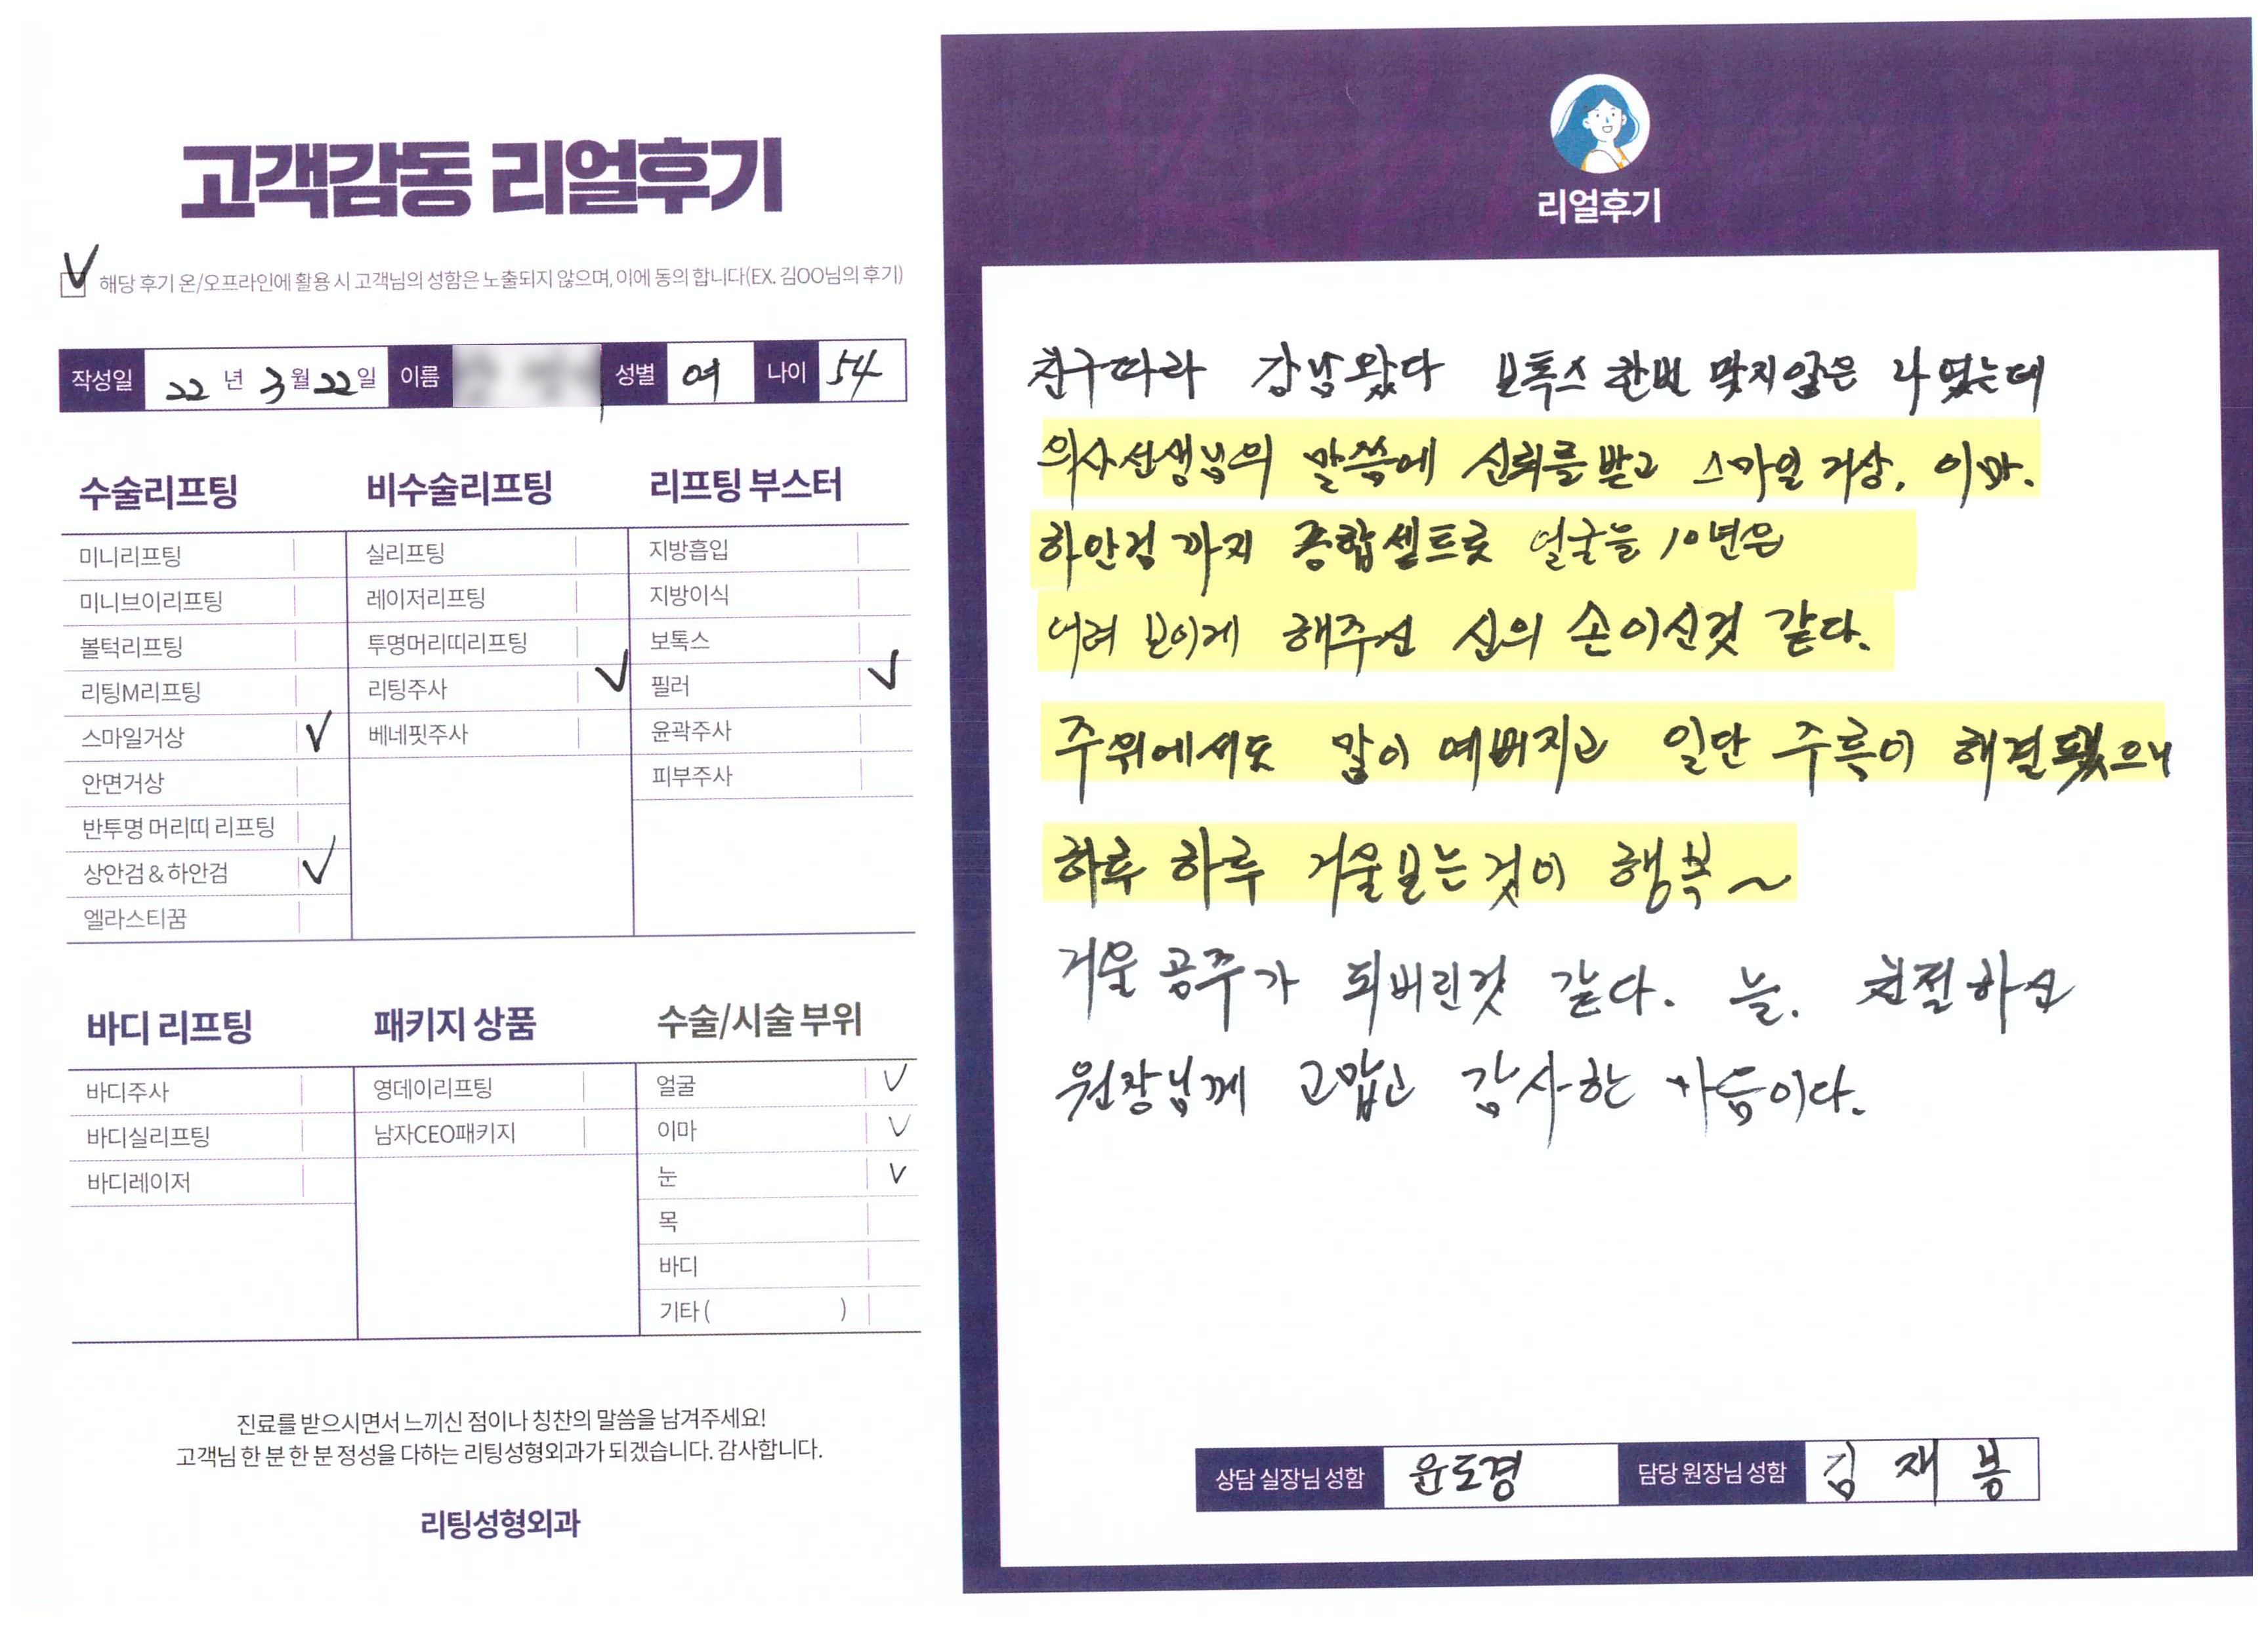 고객감동 리얼후기
V 해당 후기 온/오프라인에 활용 시 고객님의 성함은 노출되지 않으며, 이에 동의 합니다(EX. 김OO님의 후기)
작성일 22 년 3 월 22 일 이름 성별 여 나이 54
수술리프팅
미니리프팅
미니브이리프팅
볼턱리프팅
리팅M리프팅
스마일거상 V
안면거상
반투명 머리띠 리프팅
상안검 & 하안검 V
엘라스티꿈
비수술리프팅
실리프팅
레이저리프팅
투명머리띠리프팅
리팅주사 V
베네핏주사
리프팅 부스터
지방흡입
지방이식
보톡스
필러 V
윤곽주사
피부주사
바디 리프팅
바디주사
바디실리프팅
바디레이저
패키지 상품
영데이리프팅
남자CEO패키지
수술/시술 부위
얼굴 V
이마 V
눈 V
목
바디
기타 ( )
진료를 받으시면서 느끼신 점이나 칭찬의 말씀을 남겨주세요!
고객님 한 분 한 분 정성을 다하는 리팅성형외과가 되겠습니다. 감사합니다.
리팅성형외과
리얼후기
친구따라 강남왔다 보톡스 한번 맞지않은 나였는데
의사선생님의 말씀에 신뢰를 받고 스마일 거상, 이마.
하안검 까지 종합셋트로 얼굴을 10년은
어려 보이게 해주신 신의 손이신것 같다.
주위에서도 많이 예뻐지고 일단 주름이 해결됐으니
하루 하루 거울보는것이 행복~
거울 공주가 되버린것 같다. 늘. 친절하신
원장님께 고맙고 감사한 마음이다.
상담 실장님 성함 윤도경 담당 원장님 성함 김재봉